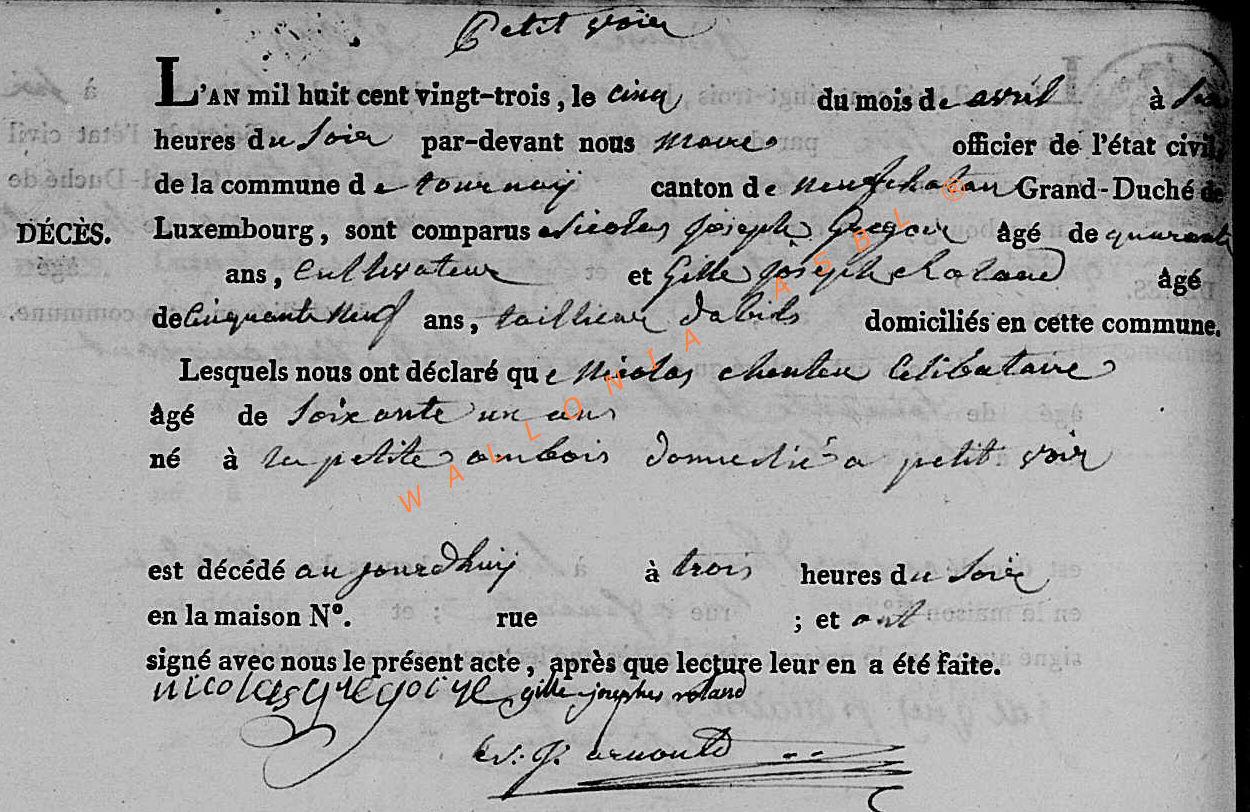 Petit voir
L'AN mil huit cent vingt-trois, le cinq du mois de avril à six
heures du Soir par-devant nous maire officier de l'état civil
de la commune de tournay canton de neufchatau Grand-Duché de
DÉCÈS. Luxembourg, sont comparus Nicolas joseph Gregoir âgé de quarante
ans, Cultivateur et Gille joseph âgé
de Cinquante Neuf ans, taillieur dabids domiciliés en cette commune.
Lesquels nous ont déclaré que Nicolas Celibataire
âgé de Soixante un ans
né à la petite domicilié a petit voir
est décédé aujourdhuy à trois heures du Soir
en la maison N°. rue ; et ont
signé avec nous le présent acte, après que lecture leur en a été faite.
nicolas gregoire gille josephe
arnould
WALLONIA ASBL ©